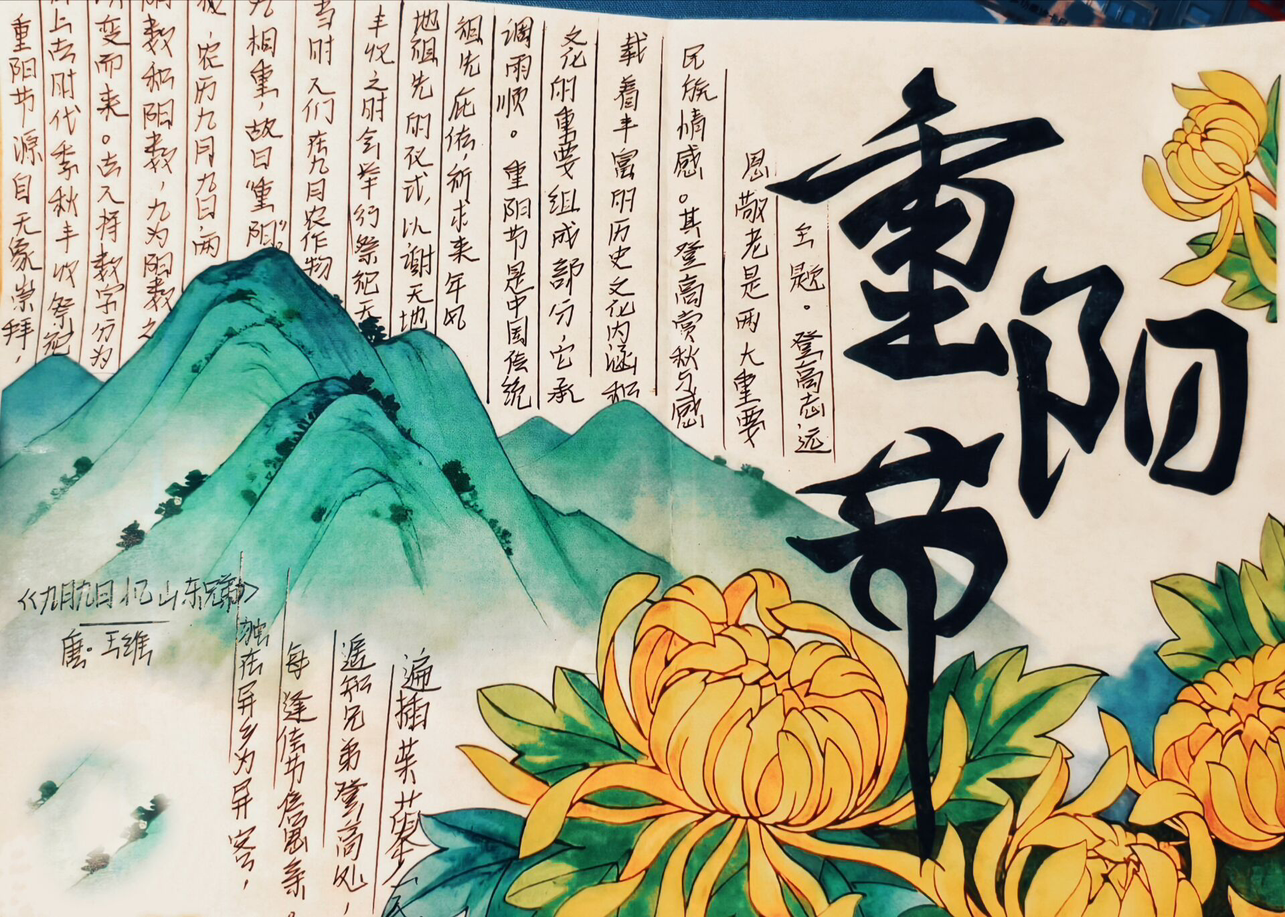 重阳节
重阳节源自天象崇拜，
上古时代季秋丰收祭祀
变而来。古人将数字分为
阴数和阳数，九为阳数之
农历九月九日，两
九相重，故曰“重阳”。
当时人们在九月农作物
丰收之时会举行祭祀天
地祖先的仪式，以谢天地
祖先庇佑，祈求来年风
调雨顺。重阳节是中国传统
文化的重要组成部分，它承
载着丰富的历史文化内涵和
民族情感。其登高赏秋与感
恩敬老是两大重要
主题。登高志远
《九月九日忆山东兄弟》
唐·王维
独在异乡为异客，
每逢佳节倍思亲。
遥知兄弟登高处，
遍插茱萸少